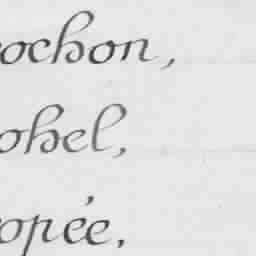 ochon,
ohel,
opée,